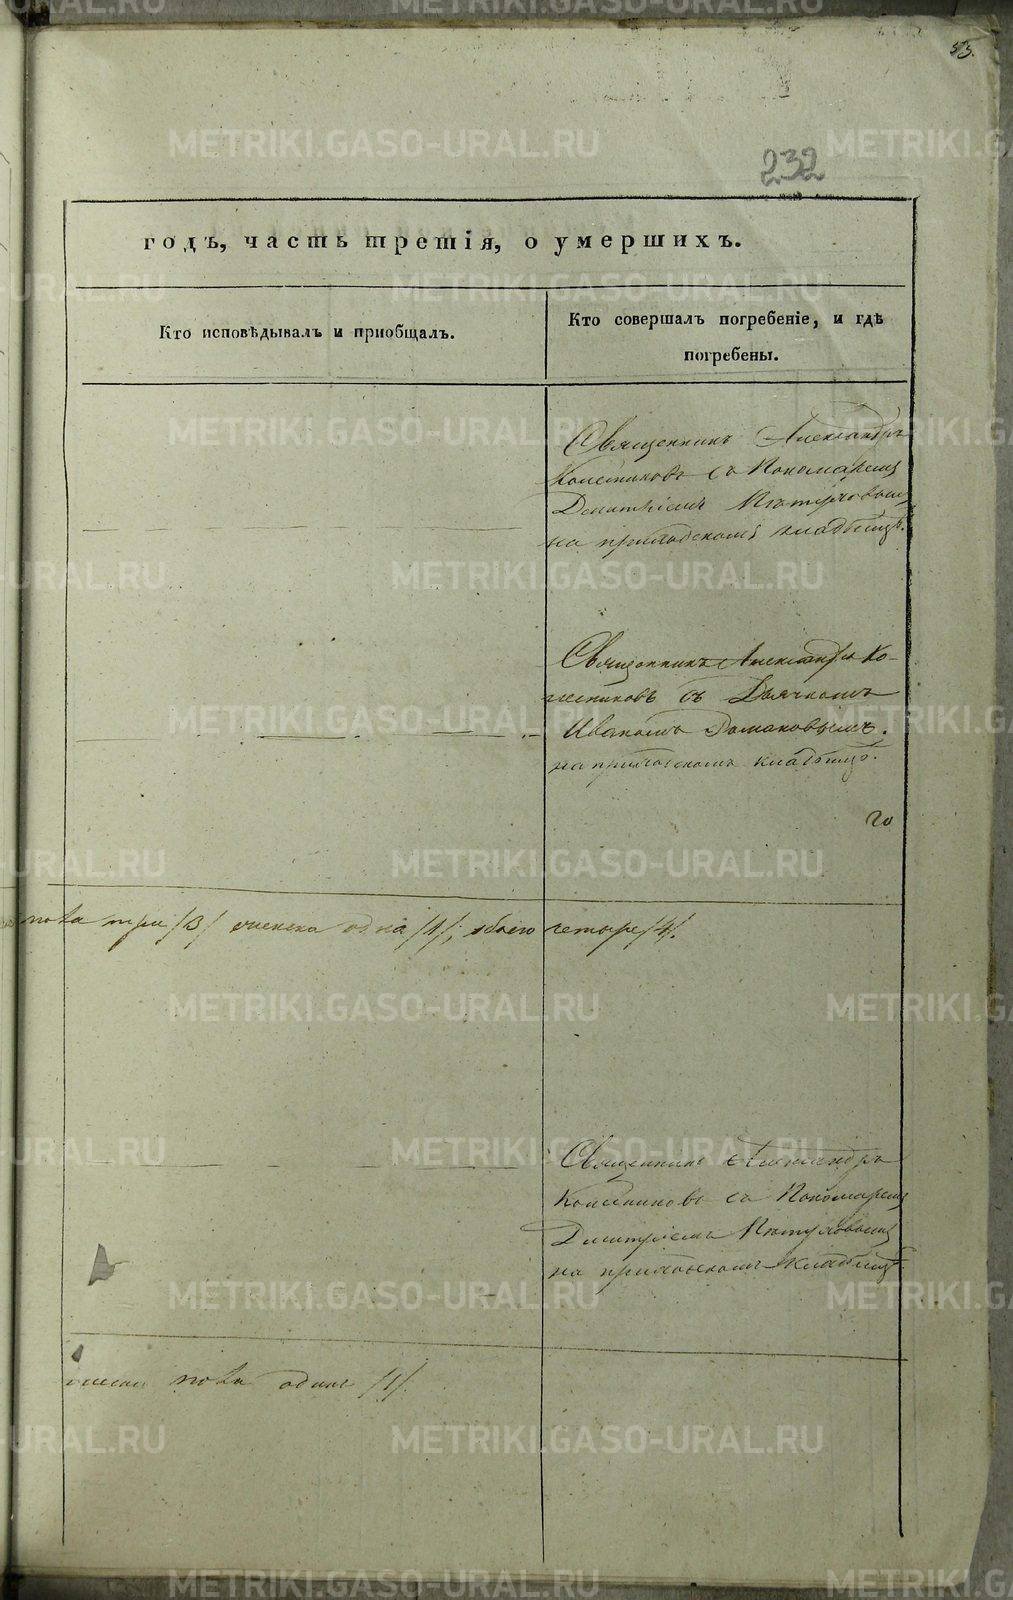 53.
232
годъ, часть третія, о умершихъ.
Кто исповѣдывалъ и приобщалъ.
Кто совершалъ погребеніе, и гдѣ
погребены.
Священникъ Александръ
Колесниковъ съ Пономаремъ
Димитріемъ Пѣтуховымъ
на приходскомъ кладбищѣ.
Священникъ Александръ Ко-
лесниковъ съ Дьячкомъ
Иваномъ
на приходскомъ кладбищѣ.
пола три /3/ женска одна /1/, обоего четыре /4/.
Священникъ Александръ
Колесниковъ съ Пономаремъ
Димитріемъ Пѣтуховымъ
на приходскомъ кладбищѣ.
пола одинъ /1/.
METRIKI.GASO-URAL.RU